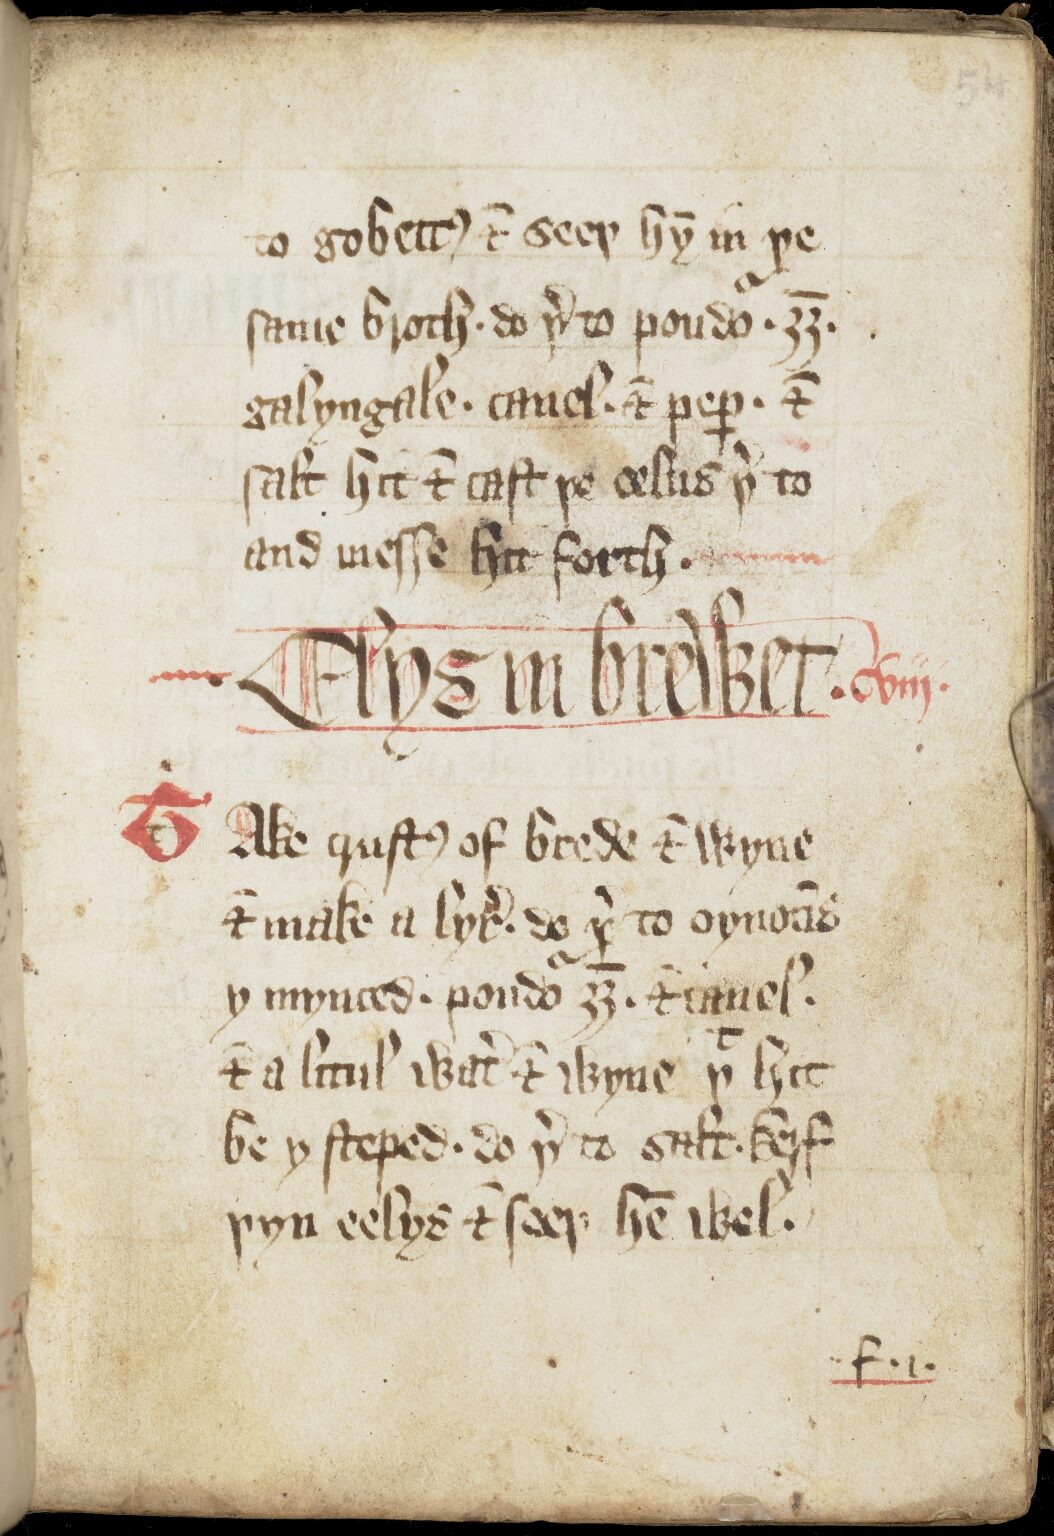 54
to gobettꝭ ⁊ seeþ hȳ in þe
same broth · do þ̉ to poudoᷓ · ȝȝ̄ ·
galyngale · canel · ⁊ peꝑ · ⁊
salt hit ⁊ cast þe eelus þ̉ to
and messe hit forth ·
Elys in brewet · cviij ·
TAke crustꝭ of brede ⁊ wyne
⁊ make a lyr̉ · do þ̉ to oynoūs
y mynced · poudoᷓ ȝȝ̄ · ⁊ canel ·
⁊ a litul wat̉ ⁊ wyne þͭ hit
be y steped · do þ̉ to salt · kerf
þyn eelys ⁊ seeþ hē wel ·
f · 1 ·